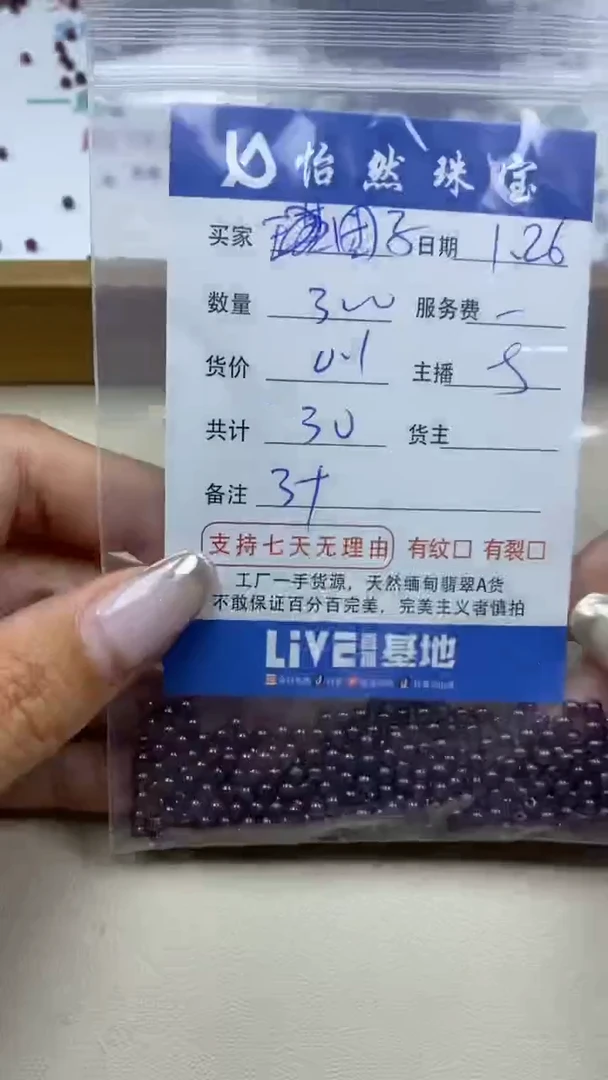 怡然珠宝
买家 团子 日期 1.26
数量 300 服务费 一
货价 0.1 主播
共计 30 货主
备注 3十
支持七天无理由 有纹□ 有裂□
工厂一手货源，天然缅甸翡翠A货
不敢保证百分百完美，完美主义者慎拍
LiVE 基地